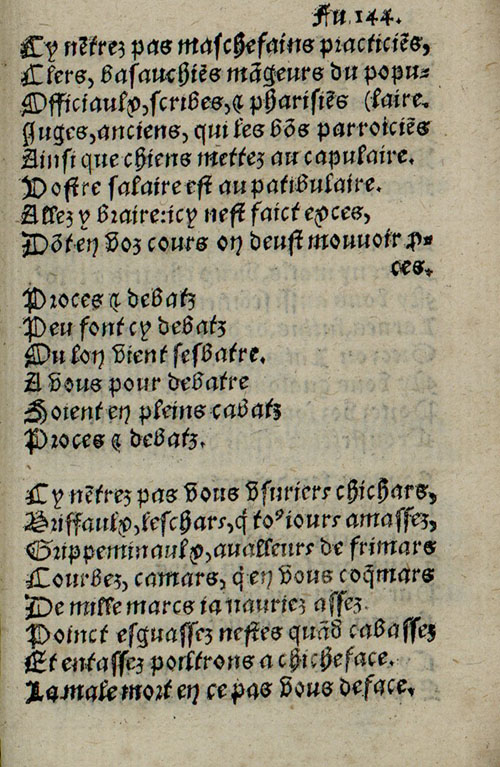 Fu. 144.
Cy nẽtrez pas maschefains practiciẽs,
Clers, basauchiẽs mãgeurs du popu-
Officiaulx, scribes, ⁊ pharisiẽs (laire.
Juges, anciens, qui les bõs parroiciẽs
Ainsi que chiens mettez au capulaire.
Vostre salaire est au patibulaire.
Allez y braire: icy nest faict exces,
Dõt en voz cours on deust mouuoir ꝓ-
ces.
Proces ⁊ debatz
Peu font cy debatz
Ou lon vient sesbatre.
A vous pour debatre
Soient en pleins cabatz
Proces ⁊ debatz.
Cy nẽtrez pas vous vsuriers chichars,
Briffaulx, leschars, q̃ toꝰiours amassez,
Grippeminaulx, aualleurs de frimars
Courbez, camars, q̃ en vous coq̃mars
De mille marcs ia nauriez assez.
Poinct esguassez nestes quãd cabassez
Et entassez poiltrons a chicheface.
La male mort en ce pas vous deface.